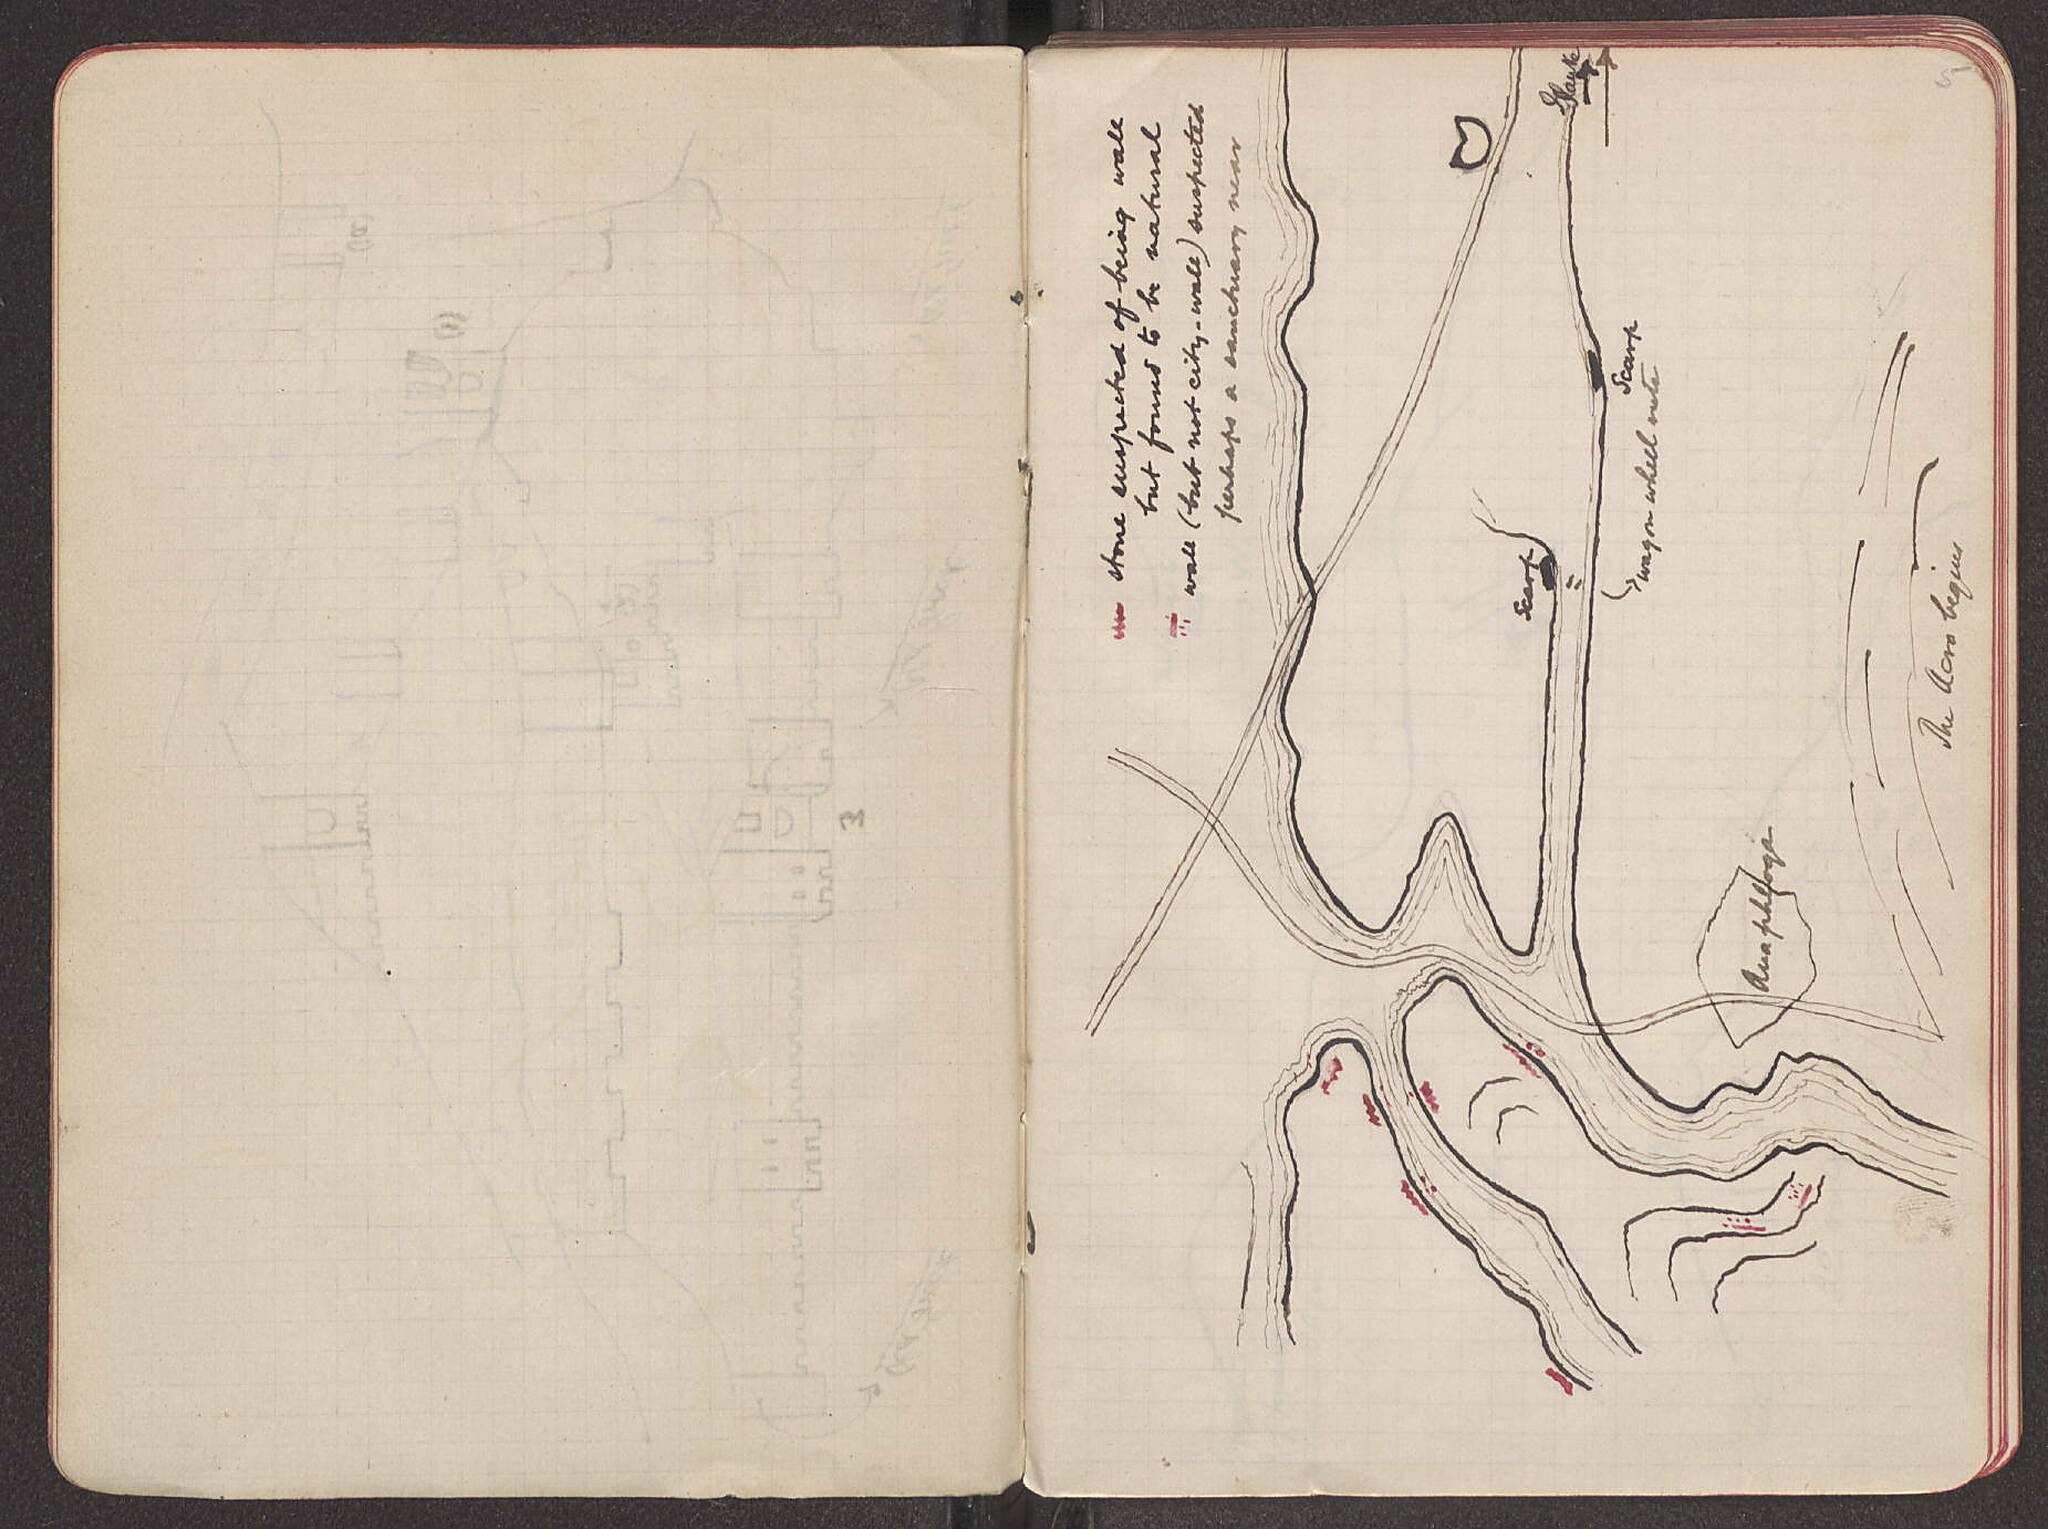 stone suspected of being wall
but found to be natural
wall (but not city-wall) suspected
perhaps a sanctuary near
Scarp
Scarp
wagon wheel ruts
Anaphlogi
The Acro begins
3
5